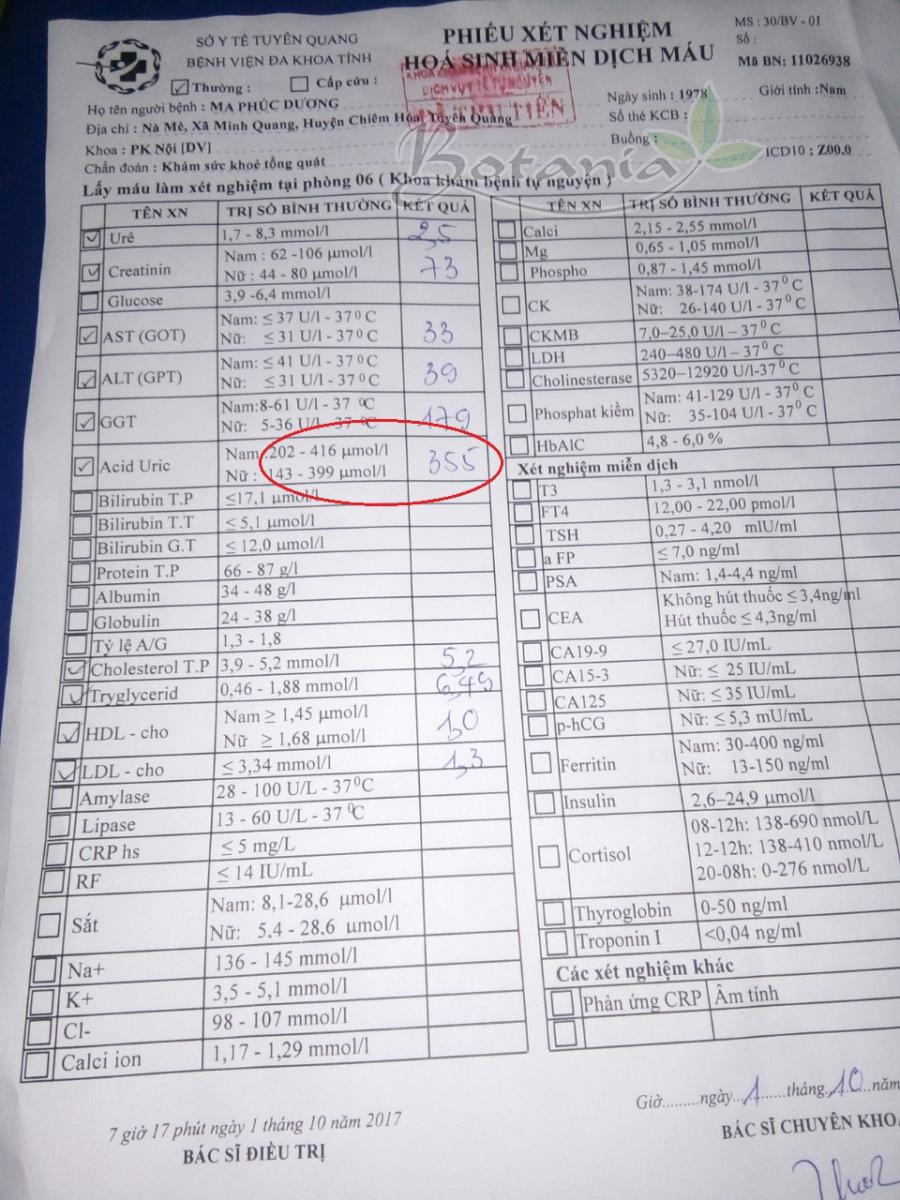 SỞ Y TẾ TUYÊN QUANG
BỆNH VIỆN ĐA KHOA TỈNH
PHIẾU XÉT NGHIỆM
HOÁ SINH MIỄN DỊCH MÁU
MS : 30/BV - 01
Số :
Mã BN: 11026938
Thường : Cấp cứu :
Họ tên người bệnh : MA PHÚC DƯƠNG
Ngày sinh : 1978 Giới tính :Nam
Địa chỉ : Nà Mè, Xã Minh Quang, Huyện Chiêm Hóa, Tuyên Quang
Số thẻ KCB :
Khoa : PK Nội [DV]
Buồng :
Chẩn đoán : Khám sức khoẻ tổng quát
ICD10 : Z00.0
Botania
Lấy máu làm xét nghiệm tại phòng 06 ( Khoa khám bệnh tự nguyện )
TÊN XN TRỊ SỐ BÌNH THƯỜNG KẾT QUẢ
Urê 1,7 - 8,3 mmol/l 2,5
Creatinin Nam : 62 -106 µmol/l 73
Nữ : 44 - 80 µmol/l
Glucose 3,9 -6,4 mmol/l
AST (GOT) Nam: ≤ 37 U/l - 37⁰ C 33
Nữ: ≤31 U/l - 37⁰ C
ALT (GPT) Nam: ≤41 U/l - 37⁰ C 39
Nữ: ≤31 U/l - 37⁰ C
GGT Nam:8-61 U/l - 37 ⁰C 179
Nữ: 5-36 U/l - 37 ⁰C
Acid Uric Nam :202 - 416 µmol/l 355
Nữ : 143 - 399 µmol/l
Bilirubin T.P ≤17,1 µmol/l
Bilirubin T.T ≤ 5,1 µmol/l
Bilirubin G.T ≤ 12,0 µmol/l
Protein T.P 66 - 87 g/l
Albumin 34 - 48 g/l
Globulin 24 - 38 g/l
Tỷ lệ A/G 1,3 - 1,8
Cholesterol T.P 3,9 - 5,2 mmol/l 5,2
Tryglycerid 0,46 - 1,88 mmol/l 6,49
HDL - cho Nam ≥ 1,45 µmol/l 1,0
Nữ ≥ 1,68 µmol/l
LDL - cho ≤ 3,34 mmol/l 1,3
Amylase 28 - 100 U/L - 37⁰C
Lipase 13 - 60 U/L - 37 ⁰C
CRP hs ≤ 5 mg/L
RF ≤ 14 IU/mL
Sắt Nam: 8,1-28,6 µmol/l
Nữ: 5.4 - 28.6 µmol/l
Na+ 136 - 145 mmol/l
K+ 3,5 - 5,1 mmol/l
Cl- 98 - 107 mmol/l
Calci ion 1,17 - 1,29 mmol/l
TÊN XN TRỊ SỐ BÌNH THƯỜNG KẾT QUẢ
Calci 2,15 - 2,55 mmol/l
Mg 0,65 - 1,05 mmol/l
Phospho 0,87 - 1,45 mmol/l
CK Nam: 38-174 U/l - 37⁰ C
Nữ: 26-140 U/l - 37⁰ C
CKMB 7,0–25,0 U/l – 37⁰ C
LDH 240–480 U/l – 37⁰ C
Cholinesterase 5320–12920 U/l-37⁰ C
Phosphat kiềm Nam: 41-129 U/l - 37⁰ C
Nữ: 35-104 U/l - 37⁰ C
HbAlC 4,8 - 6,0 %
Xét nghiệm miễn dịch
T3 1,3 - 3,1 nmol/l
FT4 12,00 - 22,00 pmol/l
TSH 0,27 - 4,20 mIU/ml
a FP ≤ 7,0 ng/ml
PSA Nam: 1,4-4,4 ng/ml
CEA Không hút thuốc ≤ 3,4ng/ml
Hút thuốc ≤ 4,3ng/ml
CA19-9 ≤ 27,0 IU/mL
CA15-3 Nữ: ≤ 25 IU/mL
CA125 Nữ: ≤ 35 IU/mL
p-hCG Nữ: ≤ 5,3 mU/mL
Ferritin Nam: 30-400 ng/ml
Nữ: 13-150 ng/ml
Insulin 2,6–24,9 µmol/l
Cortisol 08-12h: 138-690 nmol/L
12-12h: 138-410 nmol/L
20-08h: 0-276 nmol/L
Thyroglobin 0-50 ng/ml
Troponin I <0,04 ng/ml
Các xét nghiệm khác
Phản ứng CRP Âm tính
7 giờ 17 phút ngày 1 tháng 10 năm 2017
BÁC SĨ ĐIỀU TRỊ
Giờ.........ngày...1......tháng..10..năm
BÁC SĨ CHUYÊN KHOA